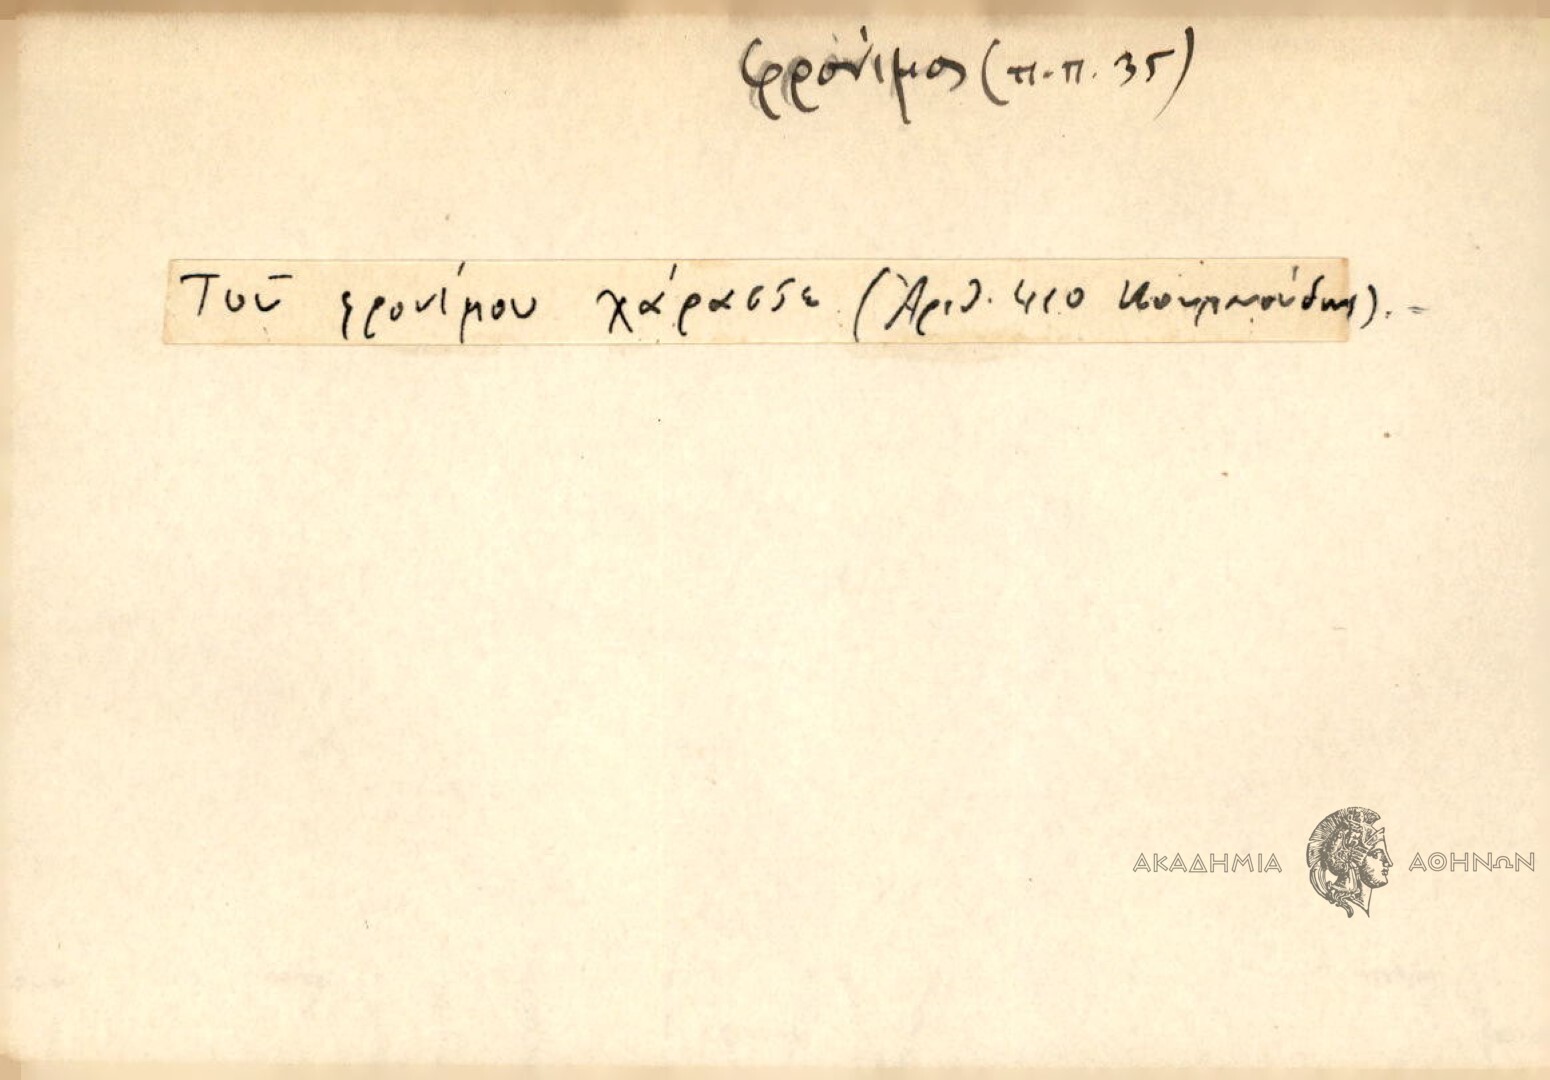 φρόνιμος (π.π. 35)
Τοῦ φρονίμου χάρασσε (Ἀριθ. 410 Κουμανούδης).
ΑΚΑΔΗΜΙΑ ΑΘΗΝΩΝ